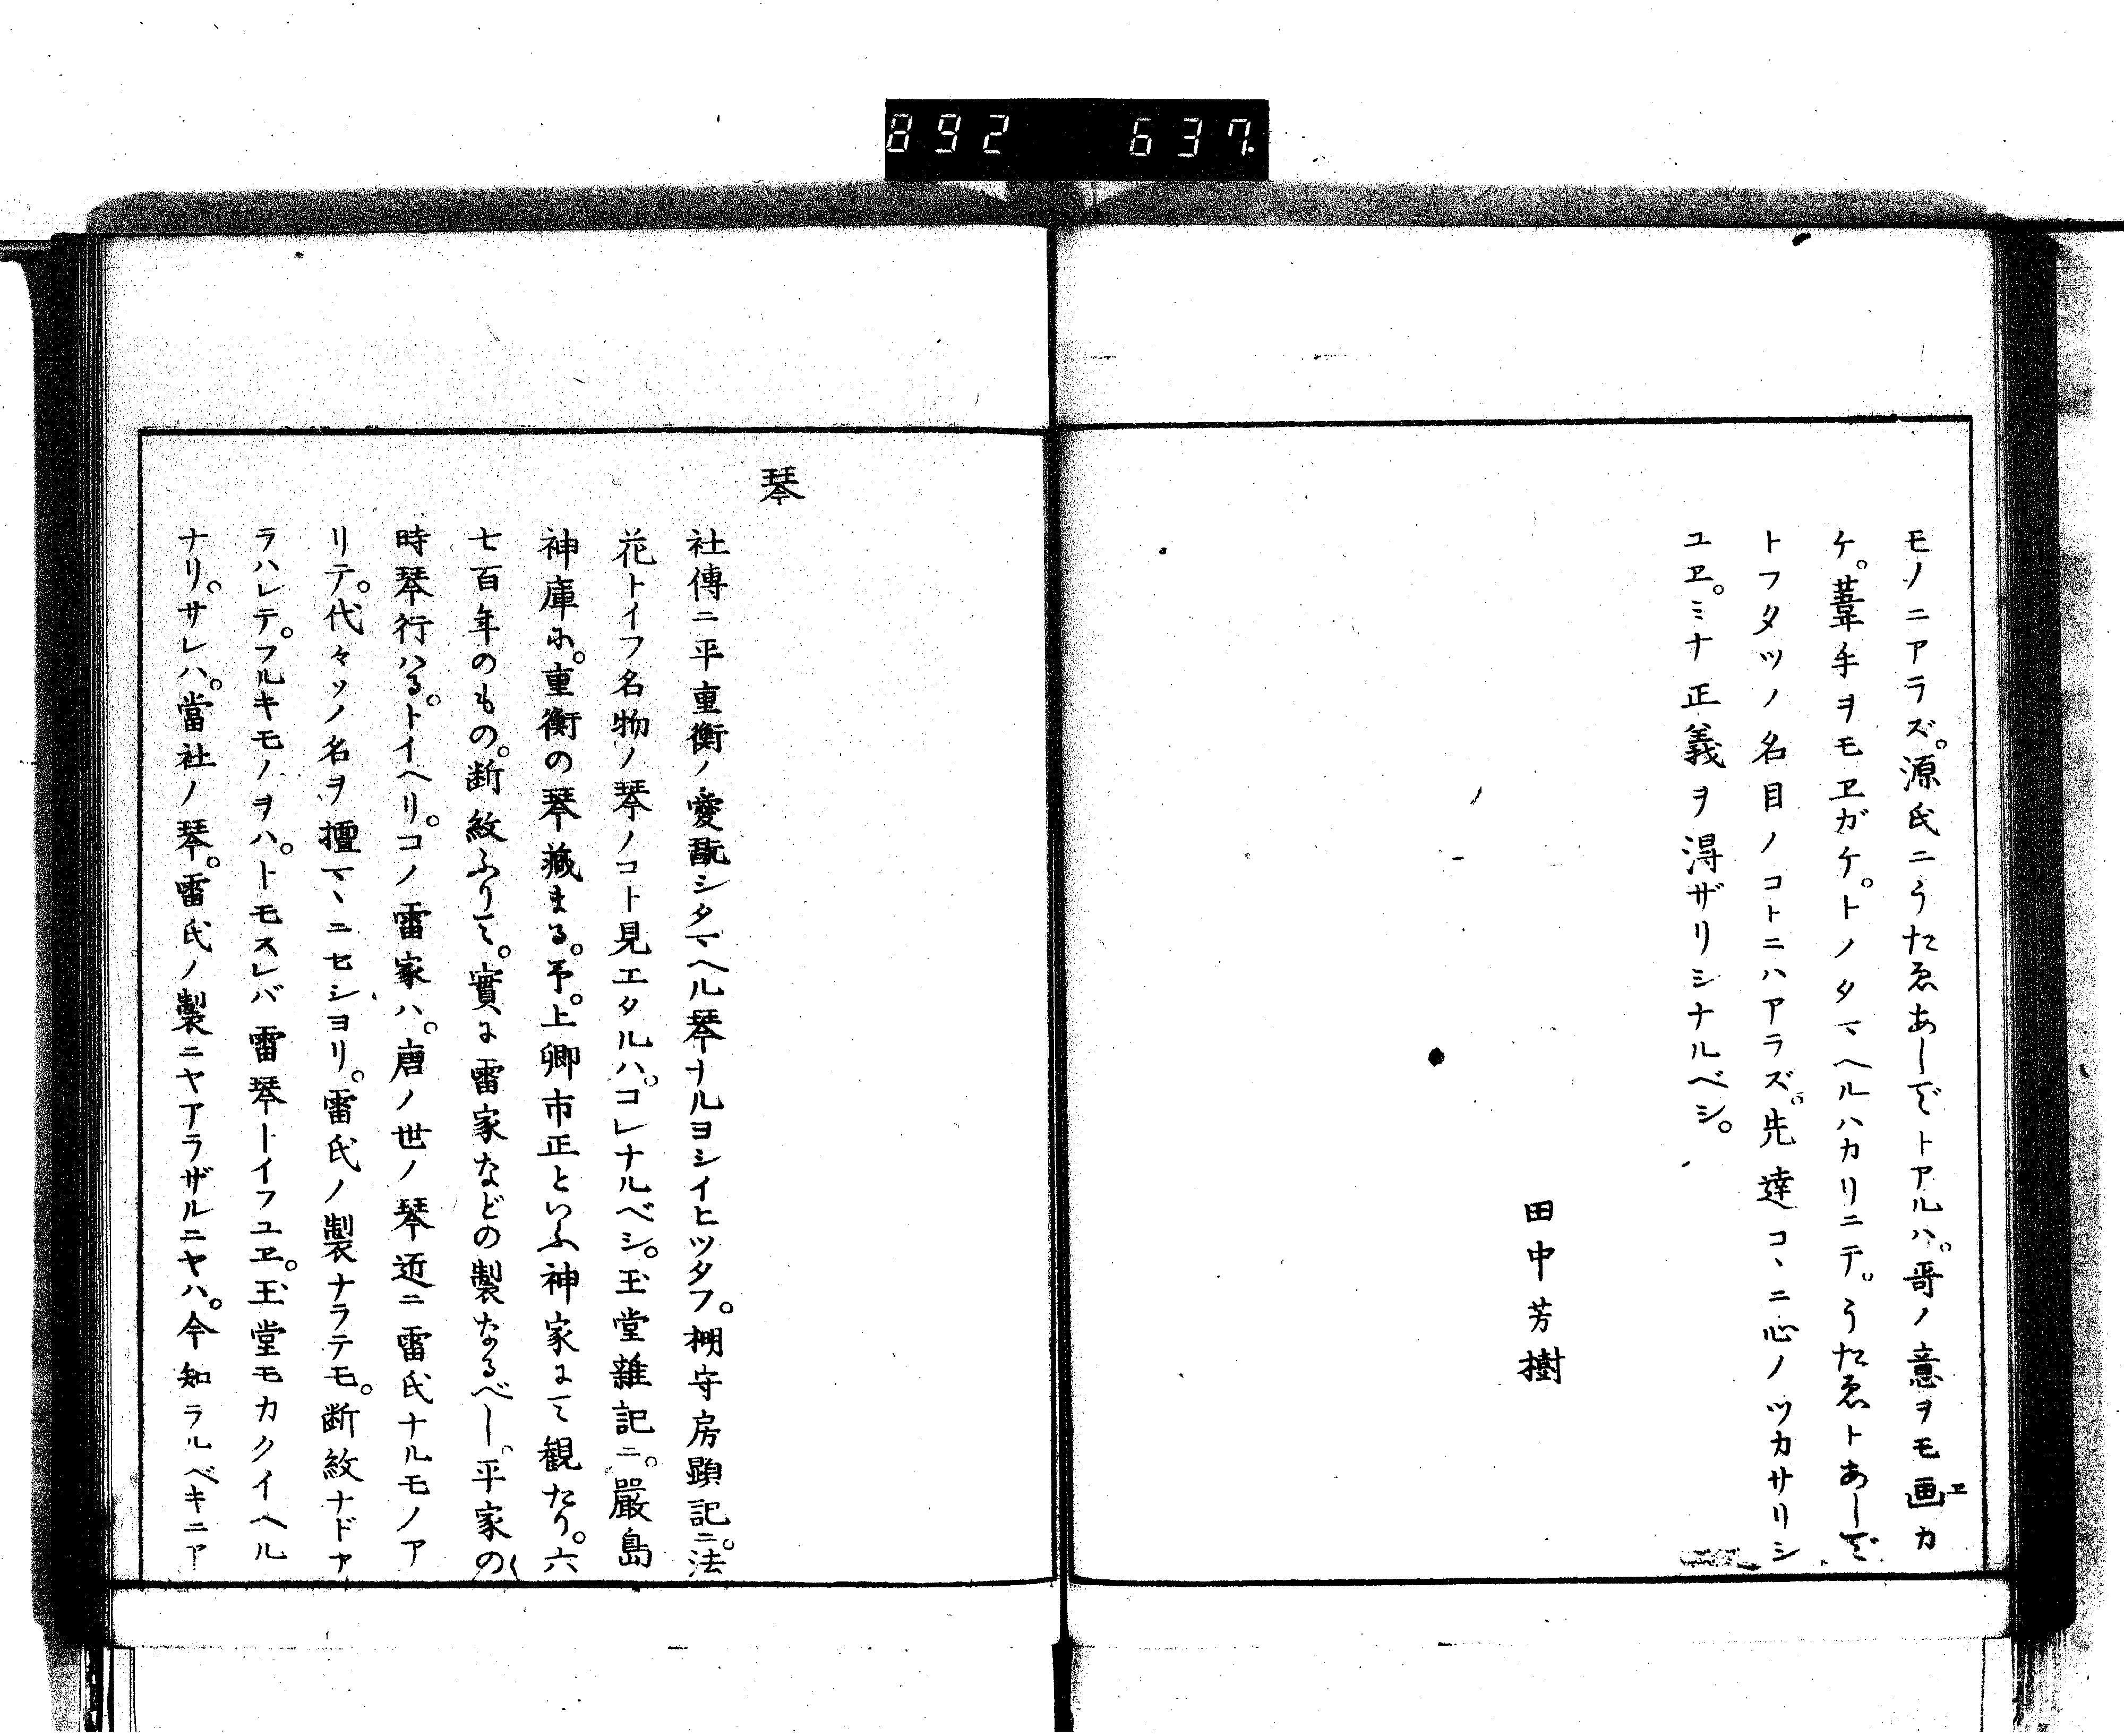 892 637.
モノニアラズ。源氏ニうたゑあしでトアルハ。哥ノ意ヲモ画カ
ヱ
ケ。葦手ヲモヱガケ。トノタマヘルハカリニテ。うたゑトあしで
トフタツノ名目ノコトニハアラズ。先達コヽニ心ノツカサリシ
ユヱ。ミナ正義ヲ淂ザリシナルベシ。
田中芳樹
琴
社傳ニ平重衡ノ愛翫シタマヘル琴ナルヨシイヒツタフ。棚守房顕記ニ。法
花トイフ名物ノ琴ノコト見エタルハ。コレナルベシ。玉堂雑記ニ。嚴島
神庫に。重衡の琴藏まる。予。上卿市正といふ神家にて観たり。六
七百年のもの。断紋ふりて。實に雷家などの製なるべし。平家の
時琴行ハる。トイヘリ。コノ雷家ハ。唐ノ世ノ琴匠ニ雷氏ナルモノア
リテ。代々ソノ名ヲ擅マヽニセシヨリ。雷氏ノ製ナラテモ。断紋ナドア
ラハレテ。フルキモノヲハ。トモスレバ雷琴トイフユヱ。玉堂モカクイヘル
ナリ。サレハ。當社ノ琴。雷氏ノ製ニヤアラザルニヤハ。今知ラルベキニア